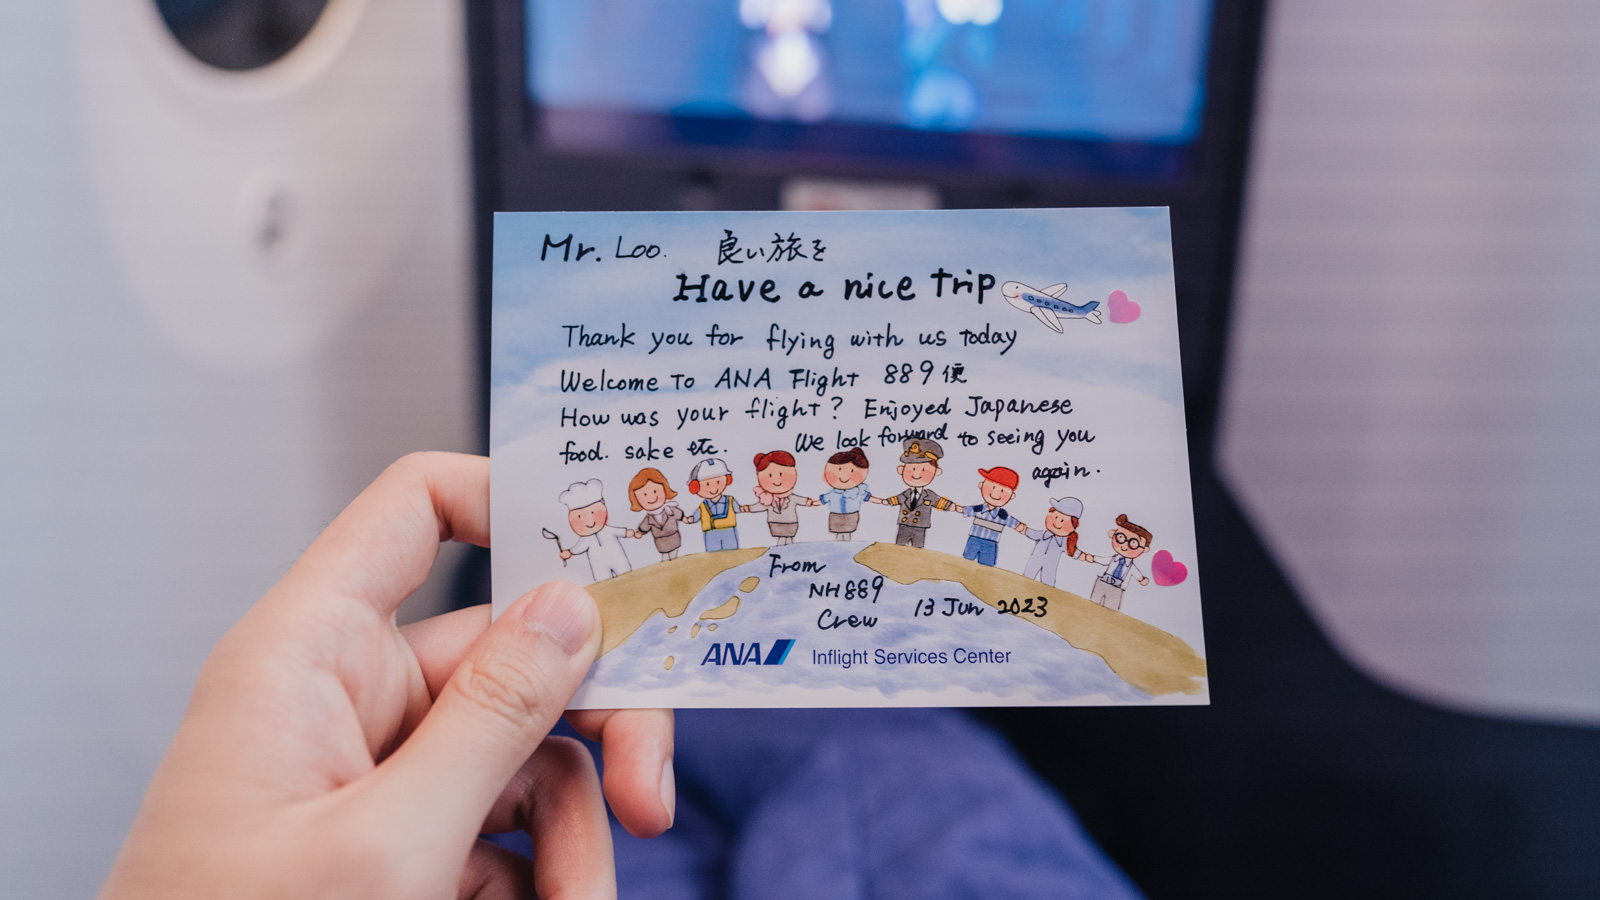 Mr. Loo. 良い旅を
Have a nice trip
Thank you for flying with us today
Welcome to ANA Flight 889便
How was your flight? Enjoyed Japanese
food. sake etc. We look forward to seeing you
again.
From
NH889
Crew 13 Jun 2023
ANA Inflight Services Center